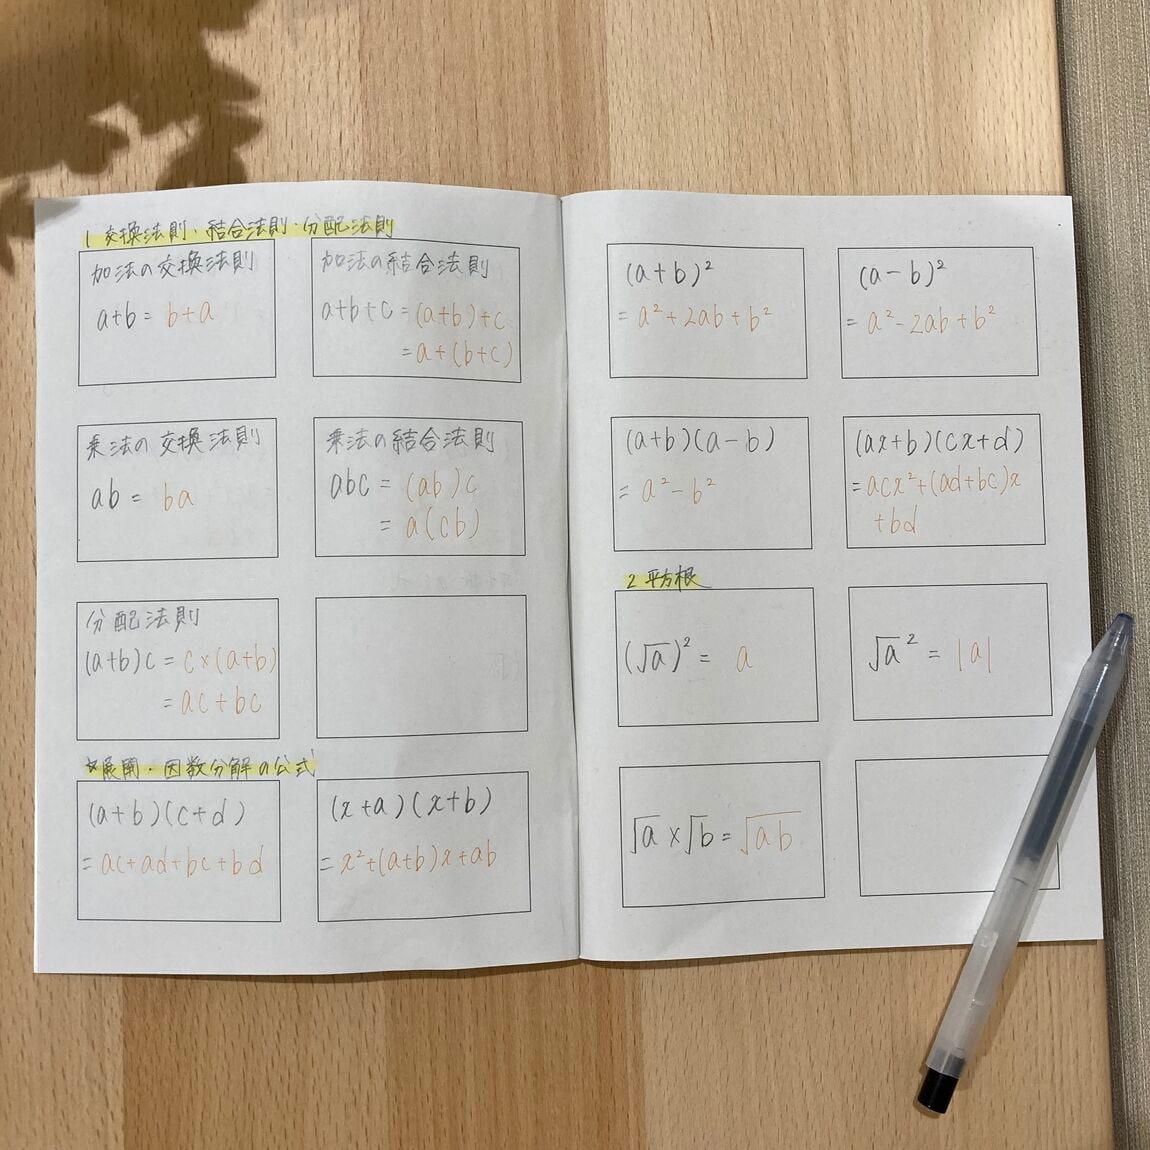 1 交換法則・結合法則・分配法則
加法の交換法則
a+b = b+a
加法の結合法則
a+b+c = (a+b)+c
= a+(b+c)
乗法の交換法則
ab = ba
乗法の結合法則
abc = (ab)c
= a(cb)
分配法則
(a+b)c = c×(a+b)
= ac+bc
*展開・因数分解の公式
(a+b)(c+d)
= ac+ad+bc+bd
(x+a)(x+b)
= x²+(a+b)x+ab
(a+b)²
= a²+2ab+b²
(a-b)²
= a²-2ab+b²
(a+b)(a-b)
= a²-b²
(ax+b)(cx+d)
= acx²+(ad+bc)x
+bd
2 平方根
(√a)² = a
√a² = |a|
√a×√b = √ab